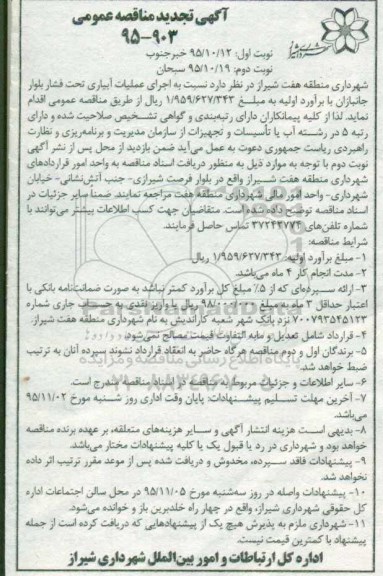 آگهی تجدید مناقصه عمومی
۹۵-۹۰۳
نوبت اول: ۹۵/۱۰/۱۲ خبرجنوب
نوبت دوم: ۹۵/۱۰/۱۹ سبحان
شهرداری منطقه هفت شیراز در نظر دارد نسبت به اجرای عملیات آبیاری تحت فشار بلوار
جانبازان با برآورد اولیه به مبلغ ۱/۹۵۹/۶۲۷/۳۴۳ ریال از طریق مناقصه عمومی اقدام
نماید. لذا از کلیه پیمانکاران دارای رتبه‌بندی و گواهی تشخیص صلاحیت شده و دارای
رتبه ۵ در رشته آب یا تأسیسات و تجهیزات از سازمان مدیریت و برنامه‌ریزی و نظارت
راهبردی ریاست جمهوری دعوت به عمل می‌آید ضمن بازدید از محل پس از نشر آگهی
نوبت دوم با توجه به موارد ذیل به منظور دریافت اسناد مناقصه به واحد امور قراردادهای
شهرداری منطقه هفت شیراز واقع در بلوار فرصت شیرازی- جنب آتش‌نشانی- خیابان
شهرداری- واحد امور مالی شهرداری منطقه هفت مراجعه نمایند. ضمناً سایر جزئیات در
اسناد مناقصه توضیح داده شده است. متقاضیان جهت کسب اطلاعات بیشتر می‌توانند با
شماره تلفن‌های ۳۷۲۴۲۷۷۴ تماس حاصل فرمایند.
شرایط مناقصه:
۱- مبلغ برآورد اولیه: ۱/۹۵۹/۶۲۷/۳۴۳ ریال
۲- مدت انجام کار ۴ ماه می‌باشد.
۳- ارائه سپرده‌ای که از ۵٪ مبلغ کل برآورد کمتر نباشد به صورت ضمانت‌نامه بانکی با
اعتبار حداقل ۳ ماه به مبلغ ۹۸/۰۰۰/۰۰۰ ریال یا واریز نقدی به حساب جاری شماره
۷۰۰۷۹۳۵۴۵۱۲۳ نزد بانک شهر شعبه کارآندیش به نام شهرداری منطقه هفت شیراز.
۴- قرارداد شامل تعدیل و مابه التفاوت قیمت مصالح نمی‌شود.
۵- برندگان اول و دوم مناقصه هرگاه حاضر به انعقاد قرارداد نشوند سپرده آنان به ترتیب
ضبط خواهد شد.
۶- سایر اطلاعات و جزئیات مربوطه در اسناد مناقصه مندرج است.
۷- آخرین مهلت تسلیم پیشنهادات: پایان وقت اداری روز شنبه مورخ ۹۵/۱۱/۰۲
می‌باشد.
۸- بدیهی است هزینه انتشار آگهی و سایر هزینه‌های متعلقه، بر عهده برنده مناقصه
خواهد بود و شهرداری در رد یا قبول یک یا کلیه پیشنهادات مختار می‌باشد.
۹- پیشنهادات فاقد سپرده، مخدوش و دریافت شده پس از موعد مقرر ترتیب اثر داده
نخواهد شد.
۱۰- پیشنهادات واصله در روز سه‌شنبه مورخ ۹۵/۱۱/۰۵ در محل سالن اجتماعات اداره
کل حقوقی شهرداری شیراز، واقع در چهار راه خلدبرین باز و خوانده می‌شود.
۱۱- شهرداری ملزم به پذیرش هیچ یک از پیشنهادهایی که دریافت کرده است از جمله
پیشنهاد با کمترین قیمت نیست.
اداره کل ارتباطات و امور بین‌الملل شهرداری شیراز